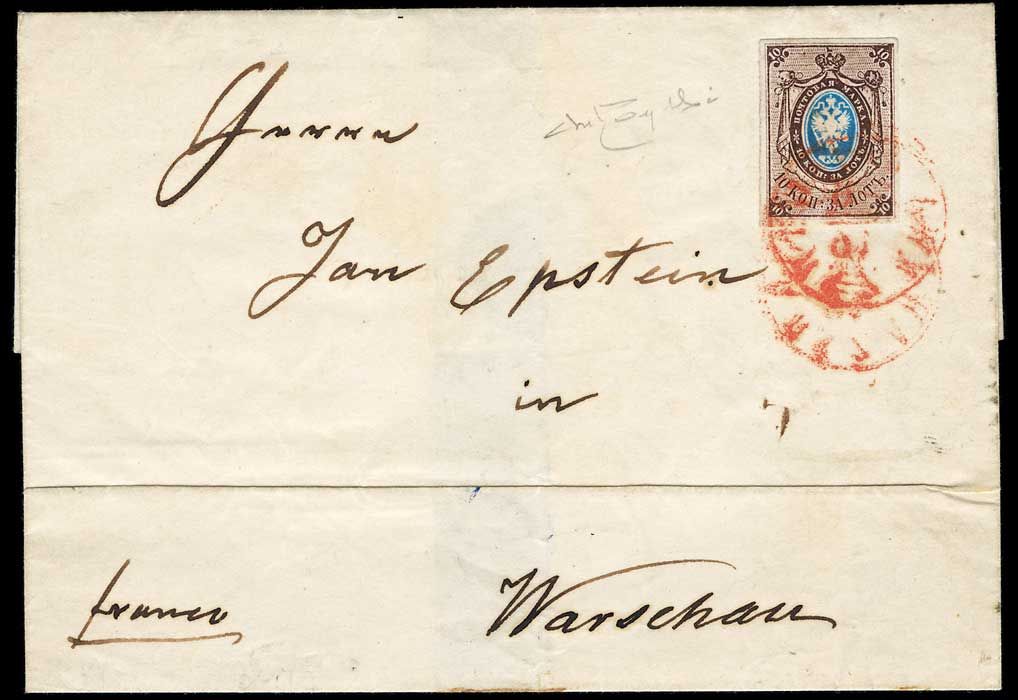 10 10
ПОЧТОВАЯ МАРКА
10 КОП: ЗА ЛОТЪ
10 КОП: ЗА ЛОТЪ.
10 10
Herrn
Jan Epstein
in
Warschau
franco